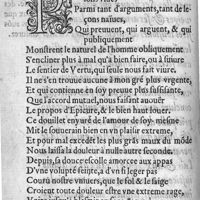 Parmi tant d'arguments, tant de le-
çons naïues,
Qui preuuent, qui arguent, & qui
publiquement
Monstrent le naturel de l'homme obliquement
S'encliner plus à mal qu'à bien faire, ou à suiure
Le sentier de Vertu, qui seule nous fait viure.
Il ne s'en trouue aucune à mon gré plus vrgente,
Et qui contienne en soy preuue plus suffisante,
Que l'accord mutuel, nous faisant auouër
Le propos d'Epicure, & le bien haut louer.
Ce douillet enyuré de l'amour de soy-mesme
Mit le souuerain bien en vn plaisir extreme,
Et pour mal excedét les plus grãs maux du mõde
Nous laissa la douleur à nulle autre seconde.
Depuis, sa douce escolle amorcee aux appas
D'vne volupté feinte, a d'vn si leger pas
Couru nostre vniuers, que le fol & le sage
Croient toute douleur estre vne extreme rage,